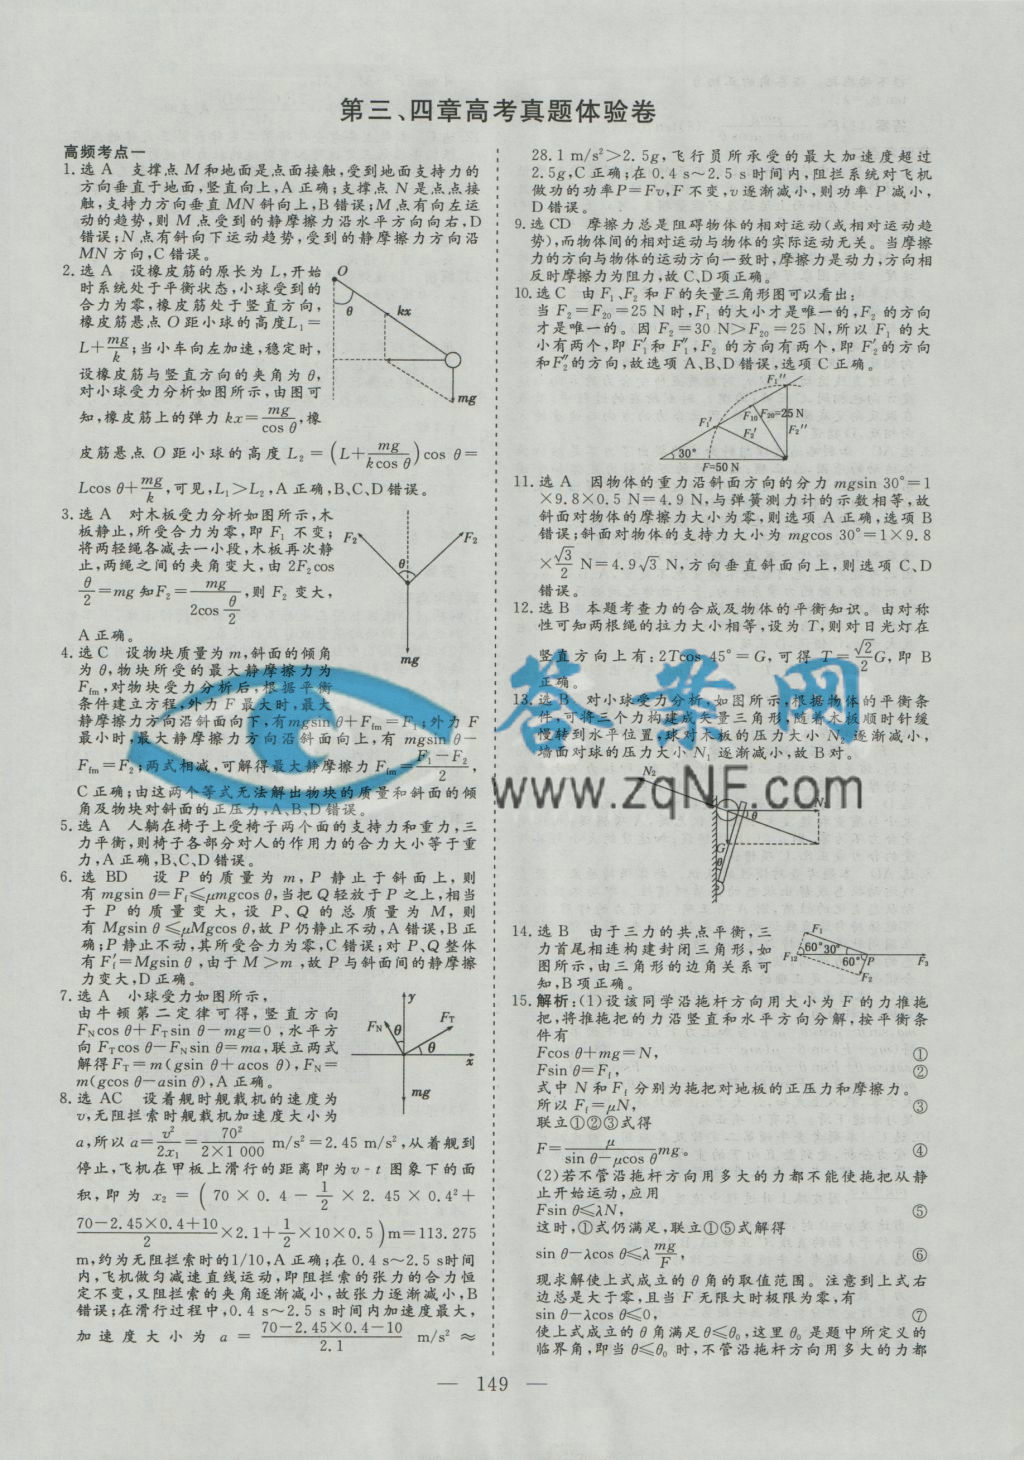 第三、四章高考真题体验卷
高频考点一
1.选A 支撑点M和地面是点面接触,受到地面支持力的
方向垂直于地面,竖直向上,A正确;支撑点N是点点接
触,支持力方向垂直MN斜向上,B错误;M点有向左运
动的趋势,则M点受到的静摩擦力沿水平方向向右,D
错误;N点有斜向下运动趋势,受到的静摩擦力方向沿
MN方向,C错误。
2.选A 设橡皮筋的原长为L,开始
时系统处于平衡状态,小球受到的
合力为零,橡皮筋处于竖直方向,
橡皮筋悬点O距小球的高度L₁=
L+mg/k;当小车向左加速,稳定时,
设橡皮筋与竖直方向的夹角为θ,
对小球受力分析如图所示,由图可
知,橡皮筋上的弹力kx=mg/cos θ,橡
皮筋悬点O距小球的高度L₂=(L+mg/kcos θ)cos θ=
Lcos θ+mg/k,可见,L₁>L₂,A正确,B、C、D错误。
O
θ
kx
mg
3.选A 对木板受力分析如图所示,木
板静止,所受合力为零,即F₁不变;
将两轻绳各减去一小段,木板再次静
止,两绳之间的夹角变大,由2F₂cos
θ/2=mg知F₂=mg/2cos θ/2,则F₂变大,
A正确。
F₂
F₂
θ
mg
4.选C 设物块质量为m,斜面的倾角
为θ,物块所受的最大静摩擦力为
Ffm,对物块受力分析后,根据平衡
条件建立方程,外力F最大时,最大
静摩擦力方向沿斜面向下,有mgsin θ+Ffm=F₁;外力F
最小时,最大静摩擦力方向沿斜面向上,有mgsin θ-
Ffm=F₂;两式相减,可解得最大静摩擦力Ffm=F₁-F₂/2,
C正确;由这两个等式无法解出物块的质量和斜面的倾
角及物块对斜面的正压力,A、B、D错误。
5.选A 人躺在椅子上受椅子两个面的支持力和重力,三
力平衡,则椅子各部分对人的作用力的合力大小等于重
力,A正确,B、C、D错误。
6.选BD 设P的质量为m,P静止于斜面上,则
有mgsin θ=Ff≤μmgcos θ,当把Q轻放于P之上,相当
于P的质量变大,设P、Q的总质量为M,则
有Mgsin θ≤μMgcos θ,故P仍静止不动,A错误,B正
确;P静止不动,其所受合力为零,C错误;对P、Q整体
有F′f=Mgsin θ,由于M>m,故P与斜面间的静摩擦
力变大,D正确。
7.选A 小球受力如图所示,
由牛顿第二定律可得,竖直方向
FNcos θ+FTsin θ-mg=0,水平方
向FTcos θ-FNsin θ=ma,联立两式
解得FT=m(gsin θ+acos θ),FN=
m(gcos θ-asin θ),A正确。
y
FN
θ
FT
θ
x
mg
8.选AC 设着舰时舰载机的速度为
v,无阻拦索时舰载机加速度大小为
a,所以a=v²/2x₁=70²/2×1 000 m/s²=2.45 m/s²,从着舰到
停止,飞机在甲板上滑行的距离即为v-t图象下的面
积,即为x₂=(70×0.4-1/2×2.45×0.4²+
70-2.45×0.4+10/2×2.1+1/2×10×0.5)m=113.275
m,约为无阻拦索时的1/10,A正确;在0.4 s~2.5 s时间
内,飞机做匀减速直线运动,即阻拦索的张力的合力恒
定不变,又阻拦索的夹角逐渐减小,故张力逐渐减小,B
错误;在滑行过程中,0.4 s~2.5 s时间内加速度最大,
加速度大小为a=70-2.45×0.4-10/2.1 m/s²≈
28.1 m/s²>2.5g,飞行员所承受的最大加速度超过
2.5g,C正确;在0.4 s~2.5 s时间内,阻拦系统对飞机
做功的功率P=Fv,F不变,v逐渐减小,则功率P减小,
D错误。
9.选CD 摩擦力总是阻碍物体的相对运动(或相对运动趋
势),而物体间的相对运动与物体的实际运动无关。当摩擦
力的方向与物体的运动方向一致时,摩擦力是动力,方向相
反时摩擦力为阻力,故C、D项正确。
10.选C 由F₁、F₂和F的矢量三角形图可以看出:
当F₂=F₂₀=25 N时,F₁的大小才是唯一的,F₂的方向
才是唯一的。因F₂=30 N>F₂₀=25 N,所以F₁的大
小有两个,即F₁′和F₁″,F₂的方向有两个,即F₂′的方向
和F₂″的方向,故选项A、B、D错误,选项C正确。
F₁″
F₁′
F₁₀
F₂₀=25 N
F₂′
F₂″
30°
F=50 N
11.选A 因物体的重力沿斜面方向的分力mgsin 30°=1
×9.8×0.5 N=4.9 N,与弹簧测力计的示数相等,故
斜面对物体的摩擦力大小为零,则选项A正确,选项B
错误;斜面对物体的支持力大小为mgcos 30°=1×9.8
×√3/2 N=4.9√3 N,方向垂直斜面向上,则选项C、D
错误。
12.选B 本题考查力的合成及物体的平衡知识。由对称
性可知两根绳的拉力大小相等,设为T,则对日光灯在
竖直方向上有:2Tcos 45°=G,可得T=√2/2G,即B
正确。
13.选B 对小球受力分析,如图所示,根据物体的平衡条
件,可将三个力构建成矢量三角形,随着木板顺时针缓
慢转到水平位置,球对木板的压力大小N₂逐渐减小,
墙面对球的压力大小N₁逐渐减小,故B对。
N₂
N₁
θ
G
θ
14.选B 由于三力的共点平衡,三
力首尾相连构建封闭三角形,如
图所示,由三角形的边角关系可
知,B项正确。
F₁
60°
30°
F₁₂
60°
P
F₃
F₂
15.解析:(1)设该同学沿拖杆方向用大小为F的力推拖
把,将推拖把的力沿竖直和水平方向分解,按平衡条
件有
Fcos θ+mg=N, ①
Fsin θ=Ff, ②
式中N和Ff分别为拖把对地板的正压力和摩擦力。
所以Ff=μN, ③
联立①②③式得
F=μ/sin θ-μcos θ mg。 ④
(2)若不管沿拖杆方向用多大的力都不能使拖把从静
止开始运动,应用
Fsin θ≤λN, ⑤
这时,①式仍满足,联立①⑤式解得
sin θ-λcos θ≤λmg/F, ⑥
现求解使上式成立的θ角的取值范围。注意到上式右
边总是大于零,且当F无限大时极限为零,有
sin θ-λcos θ≤0, ⑦
使上式成立的θ角满足θ≤θ₀,这里θ₀是题中所定义的
临界角,即当θ≤θ₀时,不管沿拖杆方向用多大的力都
答案网
www.zqNF.com
— 149 —